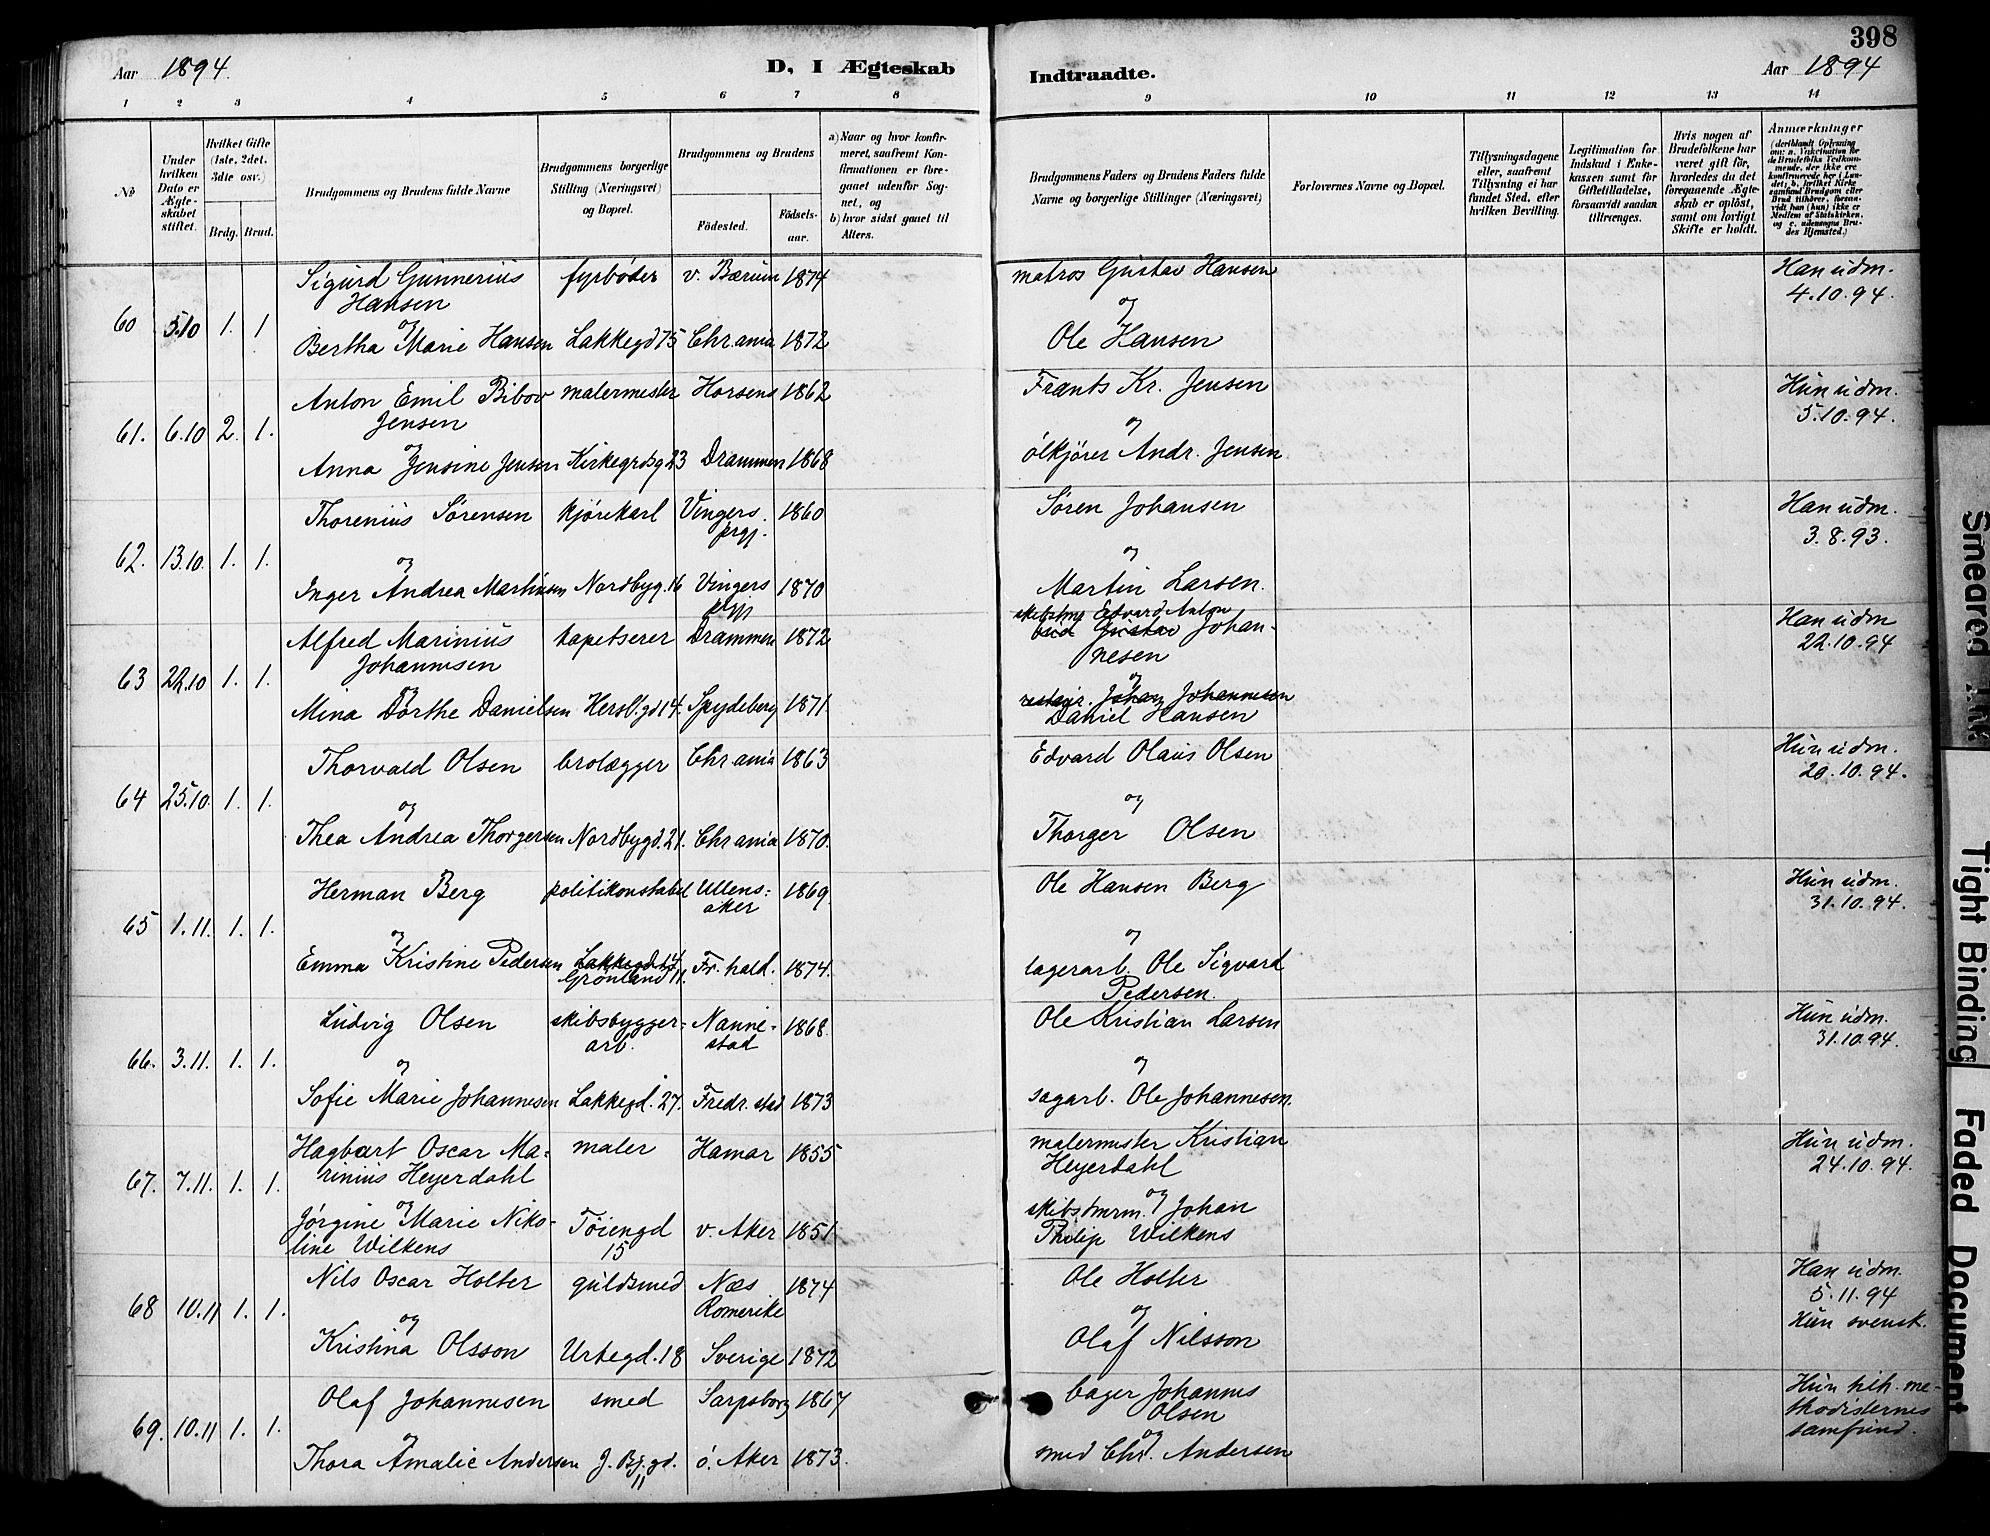 398
Aar 1894. D, I Ægteskab Indtraadte. Aar 1894
1 2 3 4 5 6 7 8 9 10 11 12 13 14
No
Under hvilken Dato er Ægteskabet stiftet.
Hvilket Gifte (1ste, 2det, 3dte osv.)
Brdg. Brud.
Brudgommens og Brudens fulde Navne
Brudgommens borgerlige Stilling (Næringsvei) og Bopæl.
Brudgommens og Brudens
Fødested. Fødselsaar.
a) Naar og hvor konfirmeret, saafremt Konfirmationen er foregaaet udenfor Sognet, og
b) hvor sidst gaaet til Alters.
Brudgommens Faders og Brudens Faders fulde Navne og borgerlige Stillinger (Næringsvei)
Forlovernes Navne og Bopæl.
Tillysningsdagene eller, saafremt Tillysning ei har fundet Sted, efter hvilken Bevilling.
Legitimation for Indskud i Enkekassen samt for Giftetilladelse, forsaavidt saadan tiltrænges.
Hvis nogen af Brudefolkene har været gift før, hvorledes da det foregaaende Ægteskab er opløst, samt om lovligt Skifte er holdt.
Anmærkninger (deriblandt Oplysning om: a. Vakcination for de Brudefolks Vedkommende, der ikke ere konfirmerede her i Landet; b. hvilket Kirkesamfund Brudgom eller Brud tilhører, forsaavidt han (hun) ikke er Medlem af Statskirken, og c. udensogns Brudes Hjemsted.)
Sigurd Gunnerius fyrbøder v. Bærum 1874 matros Gustav Hansen Han udm.
Hansen og 4.10.94.
60 5.10 1. 1 og
Bertha Marie Hansen Lakkegd 75 Chr.ania 1872 Ole Hansen
Anton Emil Bibow malermester Horsens 1862 Frants Kr. Jensen Hun udm.
Jensen 5.10.94.
61. 6.10 2. 1. og og
Anna Jensine Jensen Kirkegrdsg 23 Drammen 1868 ølkjører Andr. Jensen
Thorenius Sørensen kjørekarl Vingers prgj. 1860 Søren Johansen Han udm.
3.8.93.
62. 13.10. 1. 1. og og
Inger Andrea Martinsen Nordbyg. 16 Vingers prgj 1870 Martin Larsen.
Alfred Marinius tapetserer Drammen 1872 Edvard Anton Han udm
Johannesen Gustav Johannesen 22.10.94
63 22.10 1. 1. og og
Mina Dorthe Danielsen Hersl.gd 14. Spydeberg 1871. restaur. Johan Johannesen
Daniel Hansen
Thorvald Olsen brolægger Chr ania 1863 Edvard Olaus Olsen Hun udm.
20.10.94.
64 25.10. 1. 1. og og
Thea Andrea Thorgersen Nordbygd. 21. Chr ania 1870. Thorger Olsen
Herman Berg politikonstabel Ullensaker 1869 Ole Hansen Berg Hun udm.
31.10.94.
65 1.11. 1. 1. og og
Emma Kristine Pedersen Lakkegd 14 Fr. hald. 1874. lagerarb. Ole Sigvard
Grønland 11. Pedersen.
Ludvig Olsen skibsbyggerarb. Nannestad 1868. Ole Kristian Larsen Hun udm.
31.10.94.
66. 3.11. 1. 1. og og
Sofie Marie Johannesen Lakkegd. 27. Fredr. stad 1873 sagarb. Ole Johannesen.
Hagbart Oscar Ma- maler Hamar 1855 malermester Kristian Hun udm.
rinius Heyerdahl Heyerdahl 24.10.94.
67. 7.11. 1. 1. og og
Jørgine Marie Niko- Tøiengd v. Aker 1851 skibstmrm. Johan
line Wilkens 15 Philip Wilkens
Nils Oscar Holter guldsmed Næs Romerike 1874 Ole Holter Han udm.
5.11.94
68 10.11 1. 1. og og Hun svensk.
Kristina Olsson Urtegd. 18 Sverige 1872 Olaf Nilsson
Olaf Johannesen smed Sarpsborg 1867 bager Johannes Hun tilh. me-
Olsen thodisternes
69. 10.11 1. 1. og og samfund.
Thora Amalie Andersen J. Bj.gd. 11 ø. Aker 1873. smed Chr. Andersen
Smeared Ink
Tight Binding
Faded Document